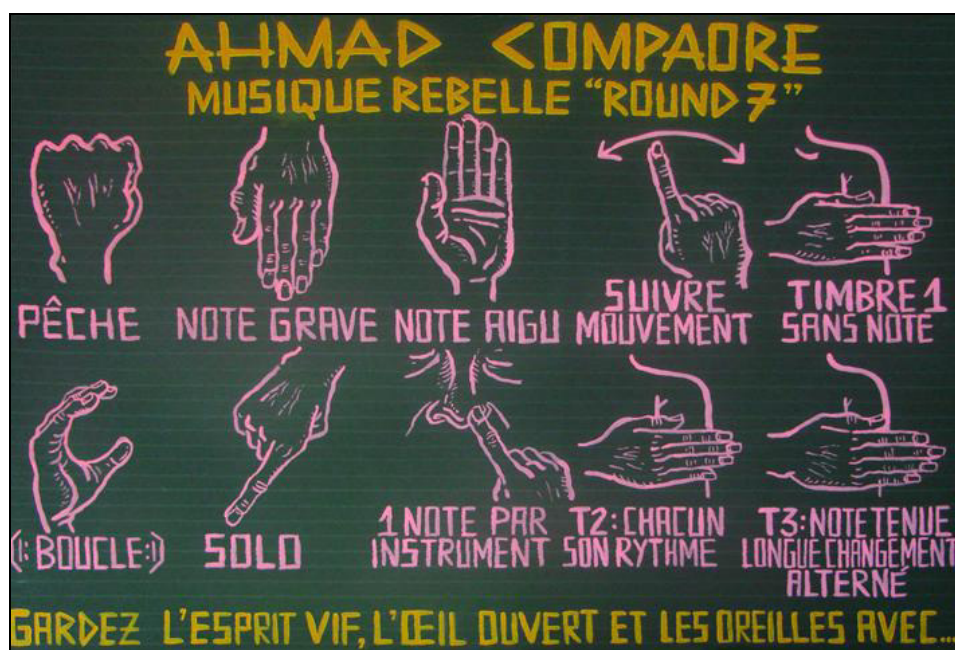 AHMAD COMPAORE
MUSIQUE REBELLE "ROUND 7"
PÊCHE
NOTE GRAVE
NOTE AIGU
SUIVRE
MOUVEMENT
TIMBRE 1
SANS NOTE
(:BOUCLE:)
SOLO
1 NOTE PAR
INSTRUMENT
T2: CHACUN
SON RYTHME
T3: NOTE TENUE
LONGUE CHANGEMENT
ALTERNÉ
GARDEZ L'ESPRIT VIF, L'ŒIL OUVERT ET LES OREILLES AVEC...